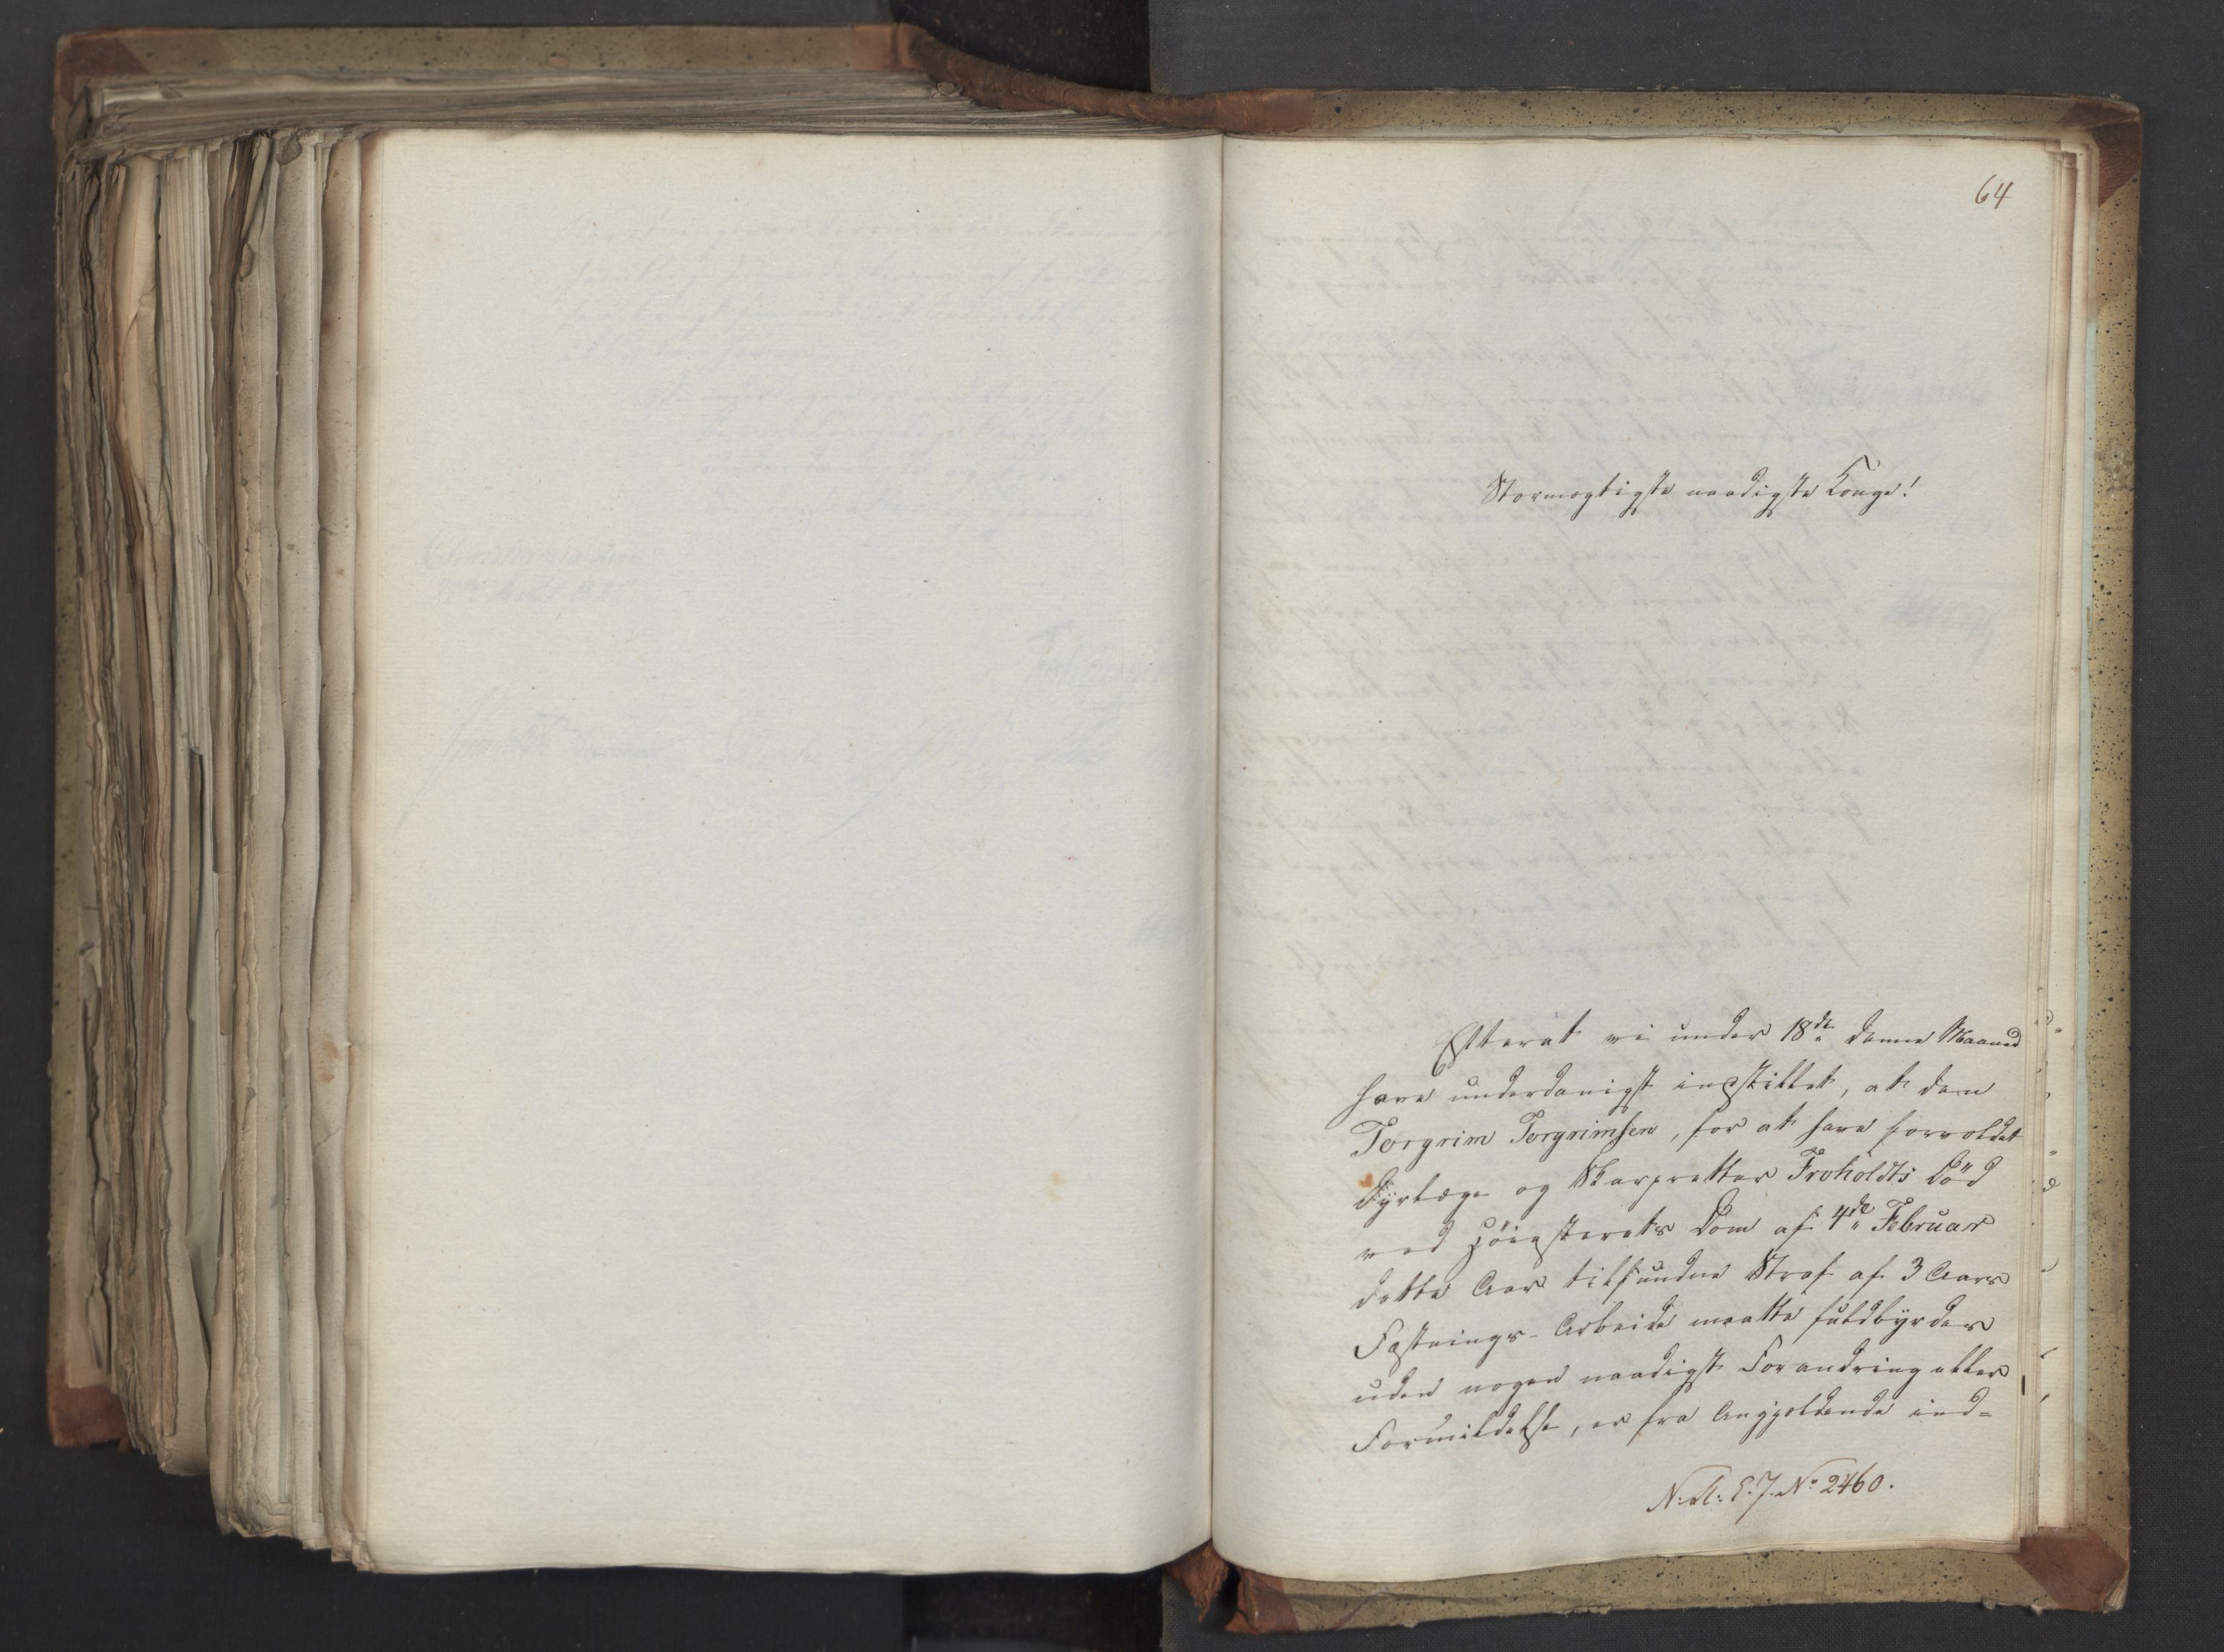 64
Stormægtigste naadigste Konge!
Efterat vi under 18de denne Maaned
have underdanigst indstillet, at den
Torgrim Torgrimsen, for at have forvoldet
Dyrlæge og Skarpretter Froholdts Död
ved Höiesterets Dom af 4de Februar
dette Aar tilfundne Straf af 3 Aars
Fæstnings-Arbeide maatte fuldbyrdes
uden nogen naadigst Forandring eller
Formildelse, er fra Angjældende ind=
N: A: E. J. No 2460.